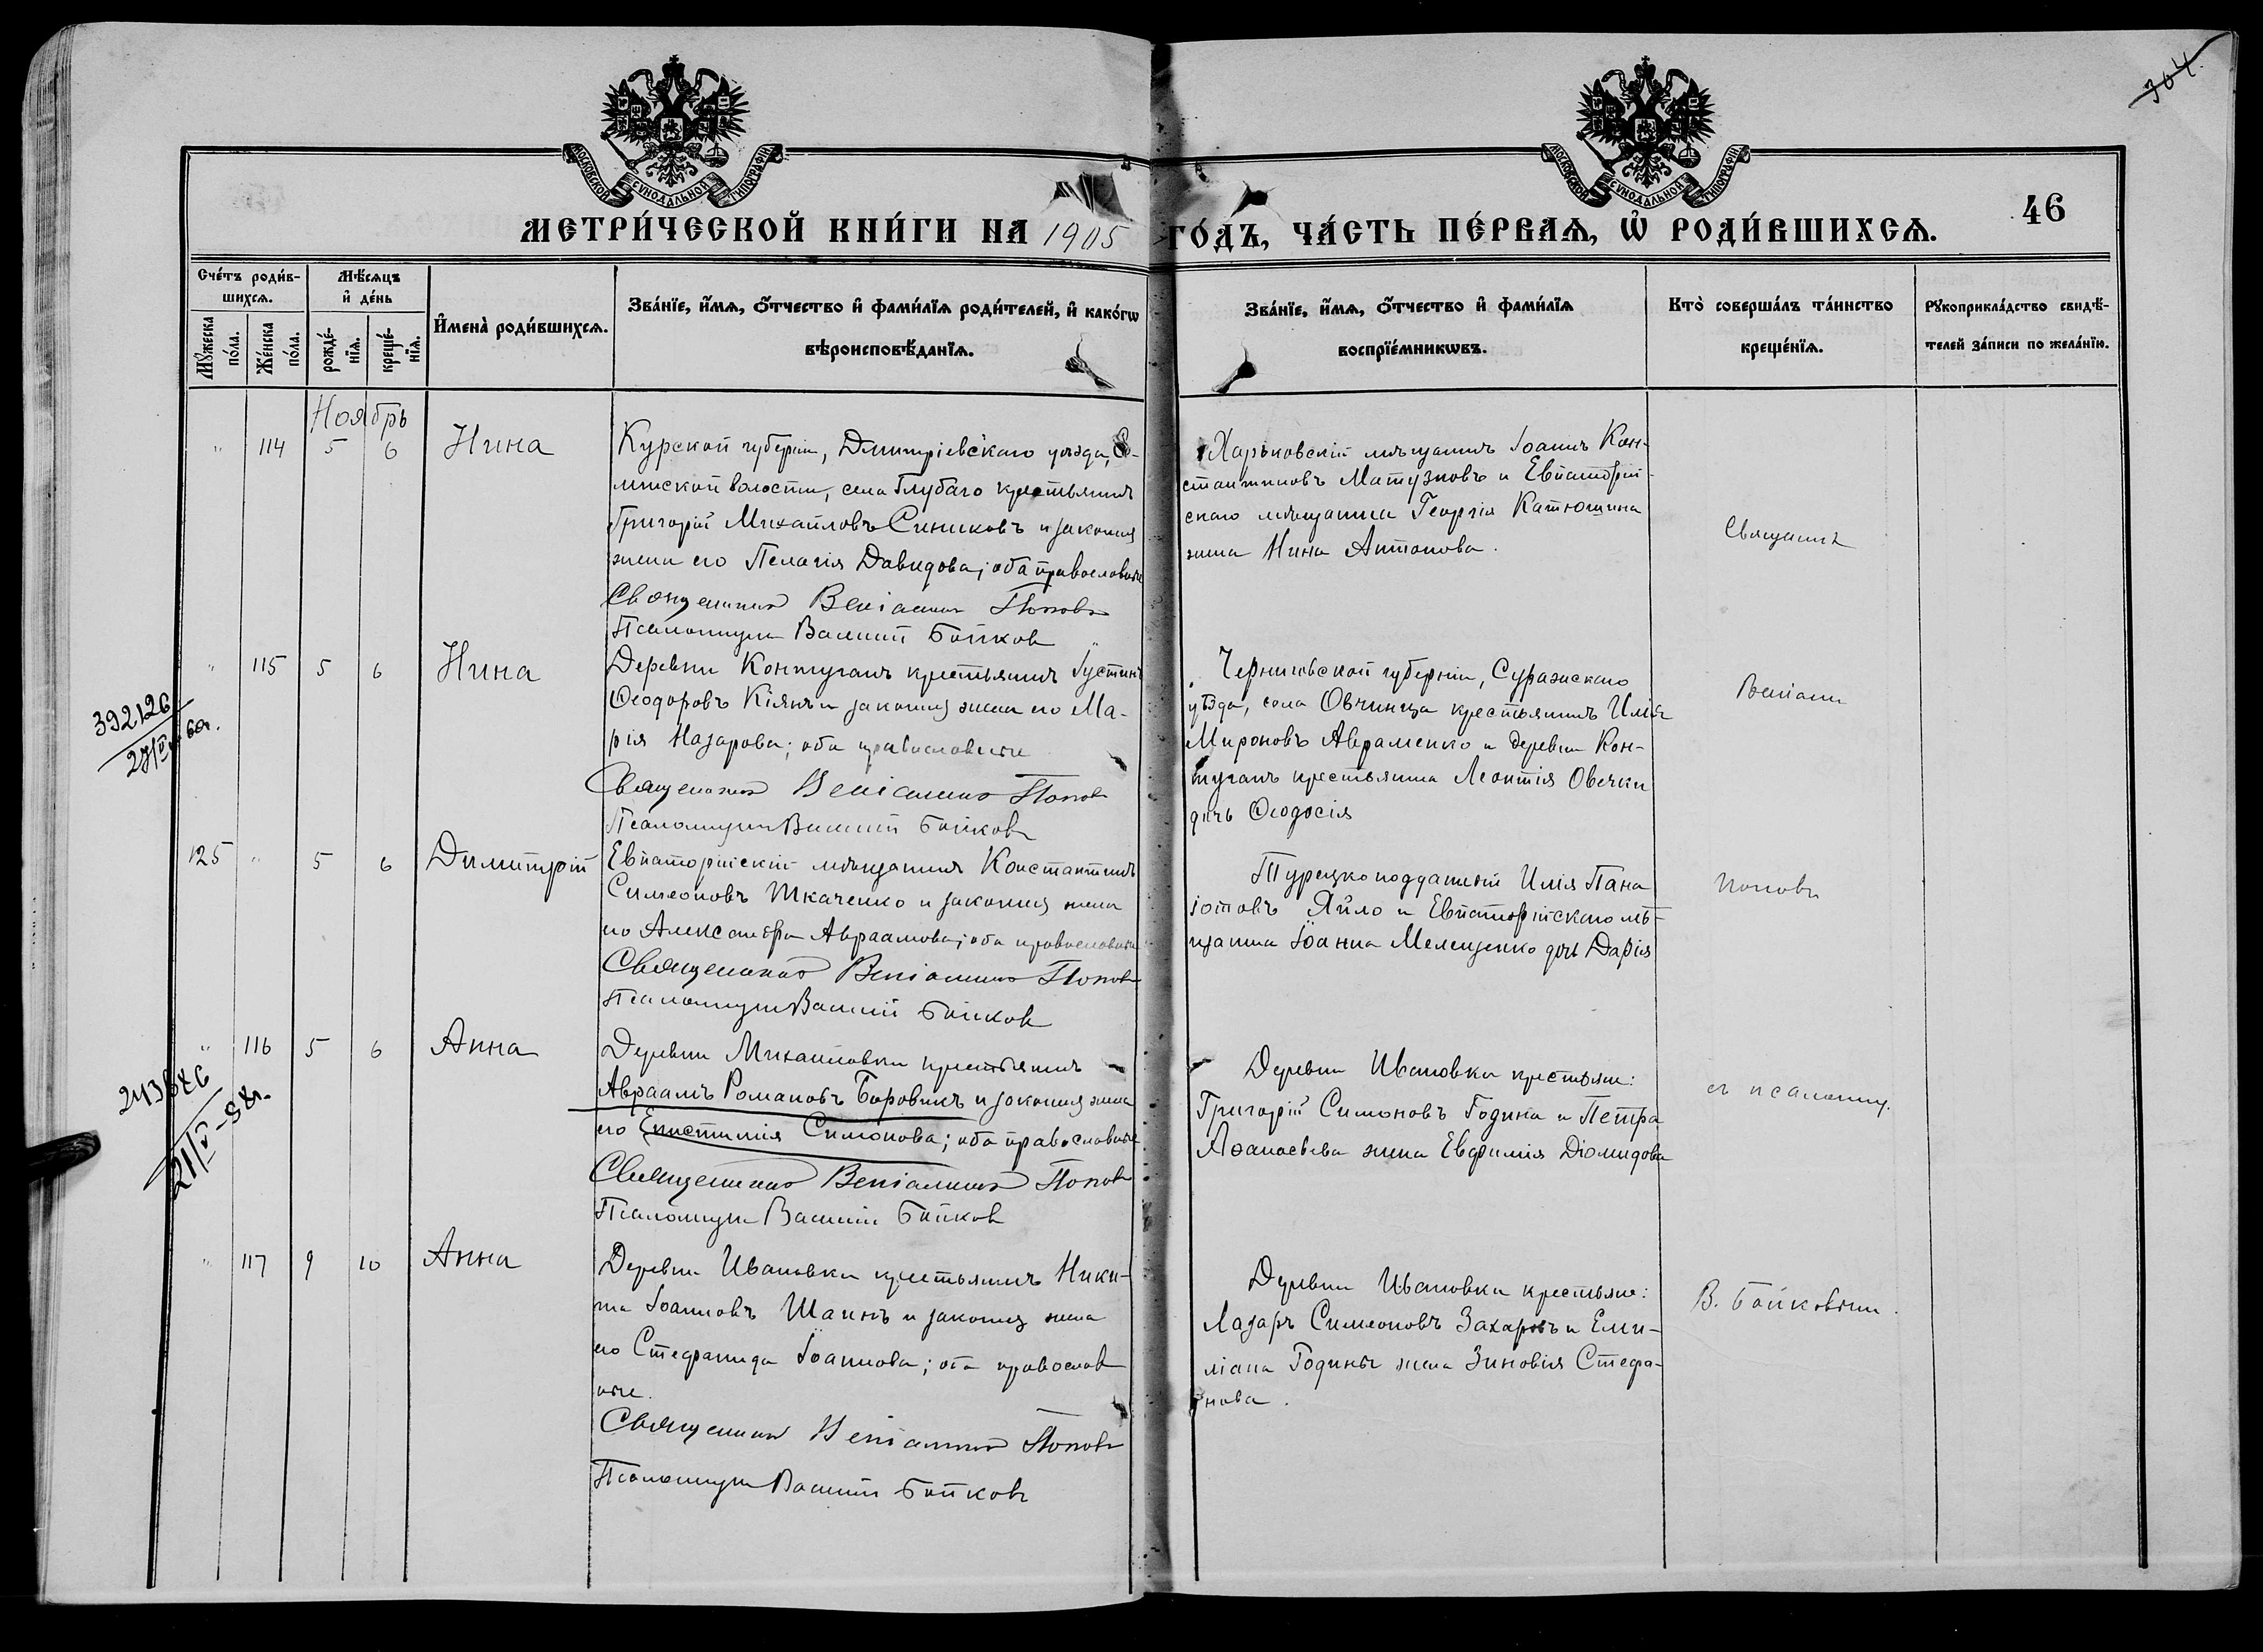 304.
МОСКОВСКОЙ СУНОДАЛЬНОЙ ТИПОГРАФІИ
МОСКОВСКОЙ СУНОДАЛЬНОЙ ТИПОГРАФІИ
46
МЕТРИ́ЧЕСКОЙ КНИ́ГИ НА 1905 ГО́ДЪ, ЧА́СТЬ ПЕ́РВАѦ, Ѽ РОДИ́ВШИХСѦ.
Сче́тъ роди́в-
шихсѧ.
Мꙋ́жеска
по́ла.
Же́нска
по́ла.
Мѣ́сѧцъ
и҆ де́нь
рожде́-
нїѧ.
креще́-
нїѧ.
И҆мена̀ роди́вшихсѧ.
Зва́нїе, и҆́мѧ, ѻ҆́тчество и҆ фами́лїѧ роди́телей, и҆ како́гѡ
вѣроисповѣ́данїѧ.
Зва́нїе, и҆́мѧ, ѻ҆́тчество и҆ фами́лїѧ
воспрїе́мникѡвъ.
Кто̀ соверша́лъ та́инство
креще́нїѧ.
Рꙋкоприкла́дство свидѣ́-
телей за́писи по жела́нїю.
Ноябрь
" 114 5 6 Нина
Курской губерніи, Дмитріевскаго уѣзда,
волости, села Глубаго крестьянинъ
Григорій Михайловъ Синиковъ и законная
жена его Пелагія Давидова; оба православные
Священникъ Веніаминъ Поповъ
Псаломщикъ Василій Бойковъ
Харьковскій мѣщанинъ Іоаннъ Кон-
стантиновъ Матузковъ и Евпаторій-
скаго мѣщанина Георгія Катющина
жена Нина Антонова.
Священникъ
" 115 5 6 Нина
392126
27/V 60г.
Деревни Контуганъ крестьянинъ Іустинъ
Ѳеодоровъ Кіянъ и законная жена его Ма-
рія Назарова; оба православные
Священникъ Веніаминъ Поповъ
Псаломщикъ Василій Бойковъ
Черниговской губерніи, Суражскаго
уѣзда, села Овчинца крестьянинъ Илія
Мироновъ Авраменко и деревни Кон-
туганъ крестьянина Леонтія Овечки
дочь Ѳеодосія
Веніамин
125 " 5 6 Димитрій
Евпаторійскій мѣщанинъ Константинъ
Симеоновъ Ткаченко и законная жена
его Александра Авраамова; оба православные
Священникъ Веніаминъ Поповъ
Псаломщикъ Василій Бойковъ
Турецкоподданный Илія Пана
іотовъ Яйло и Евпаторійскаго мѣ-
щанина Іоанна Мелещенко дочь Дарія
Поповъ
" 116 5 6 Анна
21/V-58г.
Деревни Михайловки крестьянинъ
Авраамъ Романовъ Боровикъ и законная жена
его Епистимія Симонова; оба православные
Священникъ Веніаминъ Поповъ
Псаломщикъ Василій Бойковъ
Деревни Ивановки крестьяне:
Григорій Симоновъ Година и Петра
Аѳанасьева жена Евфимія Діомидова
съ псаломщ.
" 117 9 10 Анна
Деревни Ивановки крестьянинъ Ники-
та Іоанновъ Шаинъ и законная жена
его Стефанида Іоаннова; оба православ
ные.
Священникъ Веніаминъ Поповъ
Псаломщикъ Василій Бойковъ
Деревни Ивановки крестьяне:
Лазарь Симеоновъ Захаровъ и Еми-
ліана Годины жена Зиновія Стефа-
нова.
В. Бойковымъ.